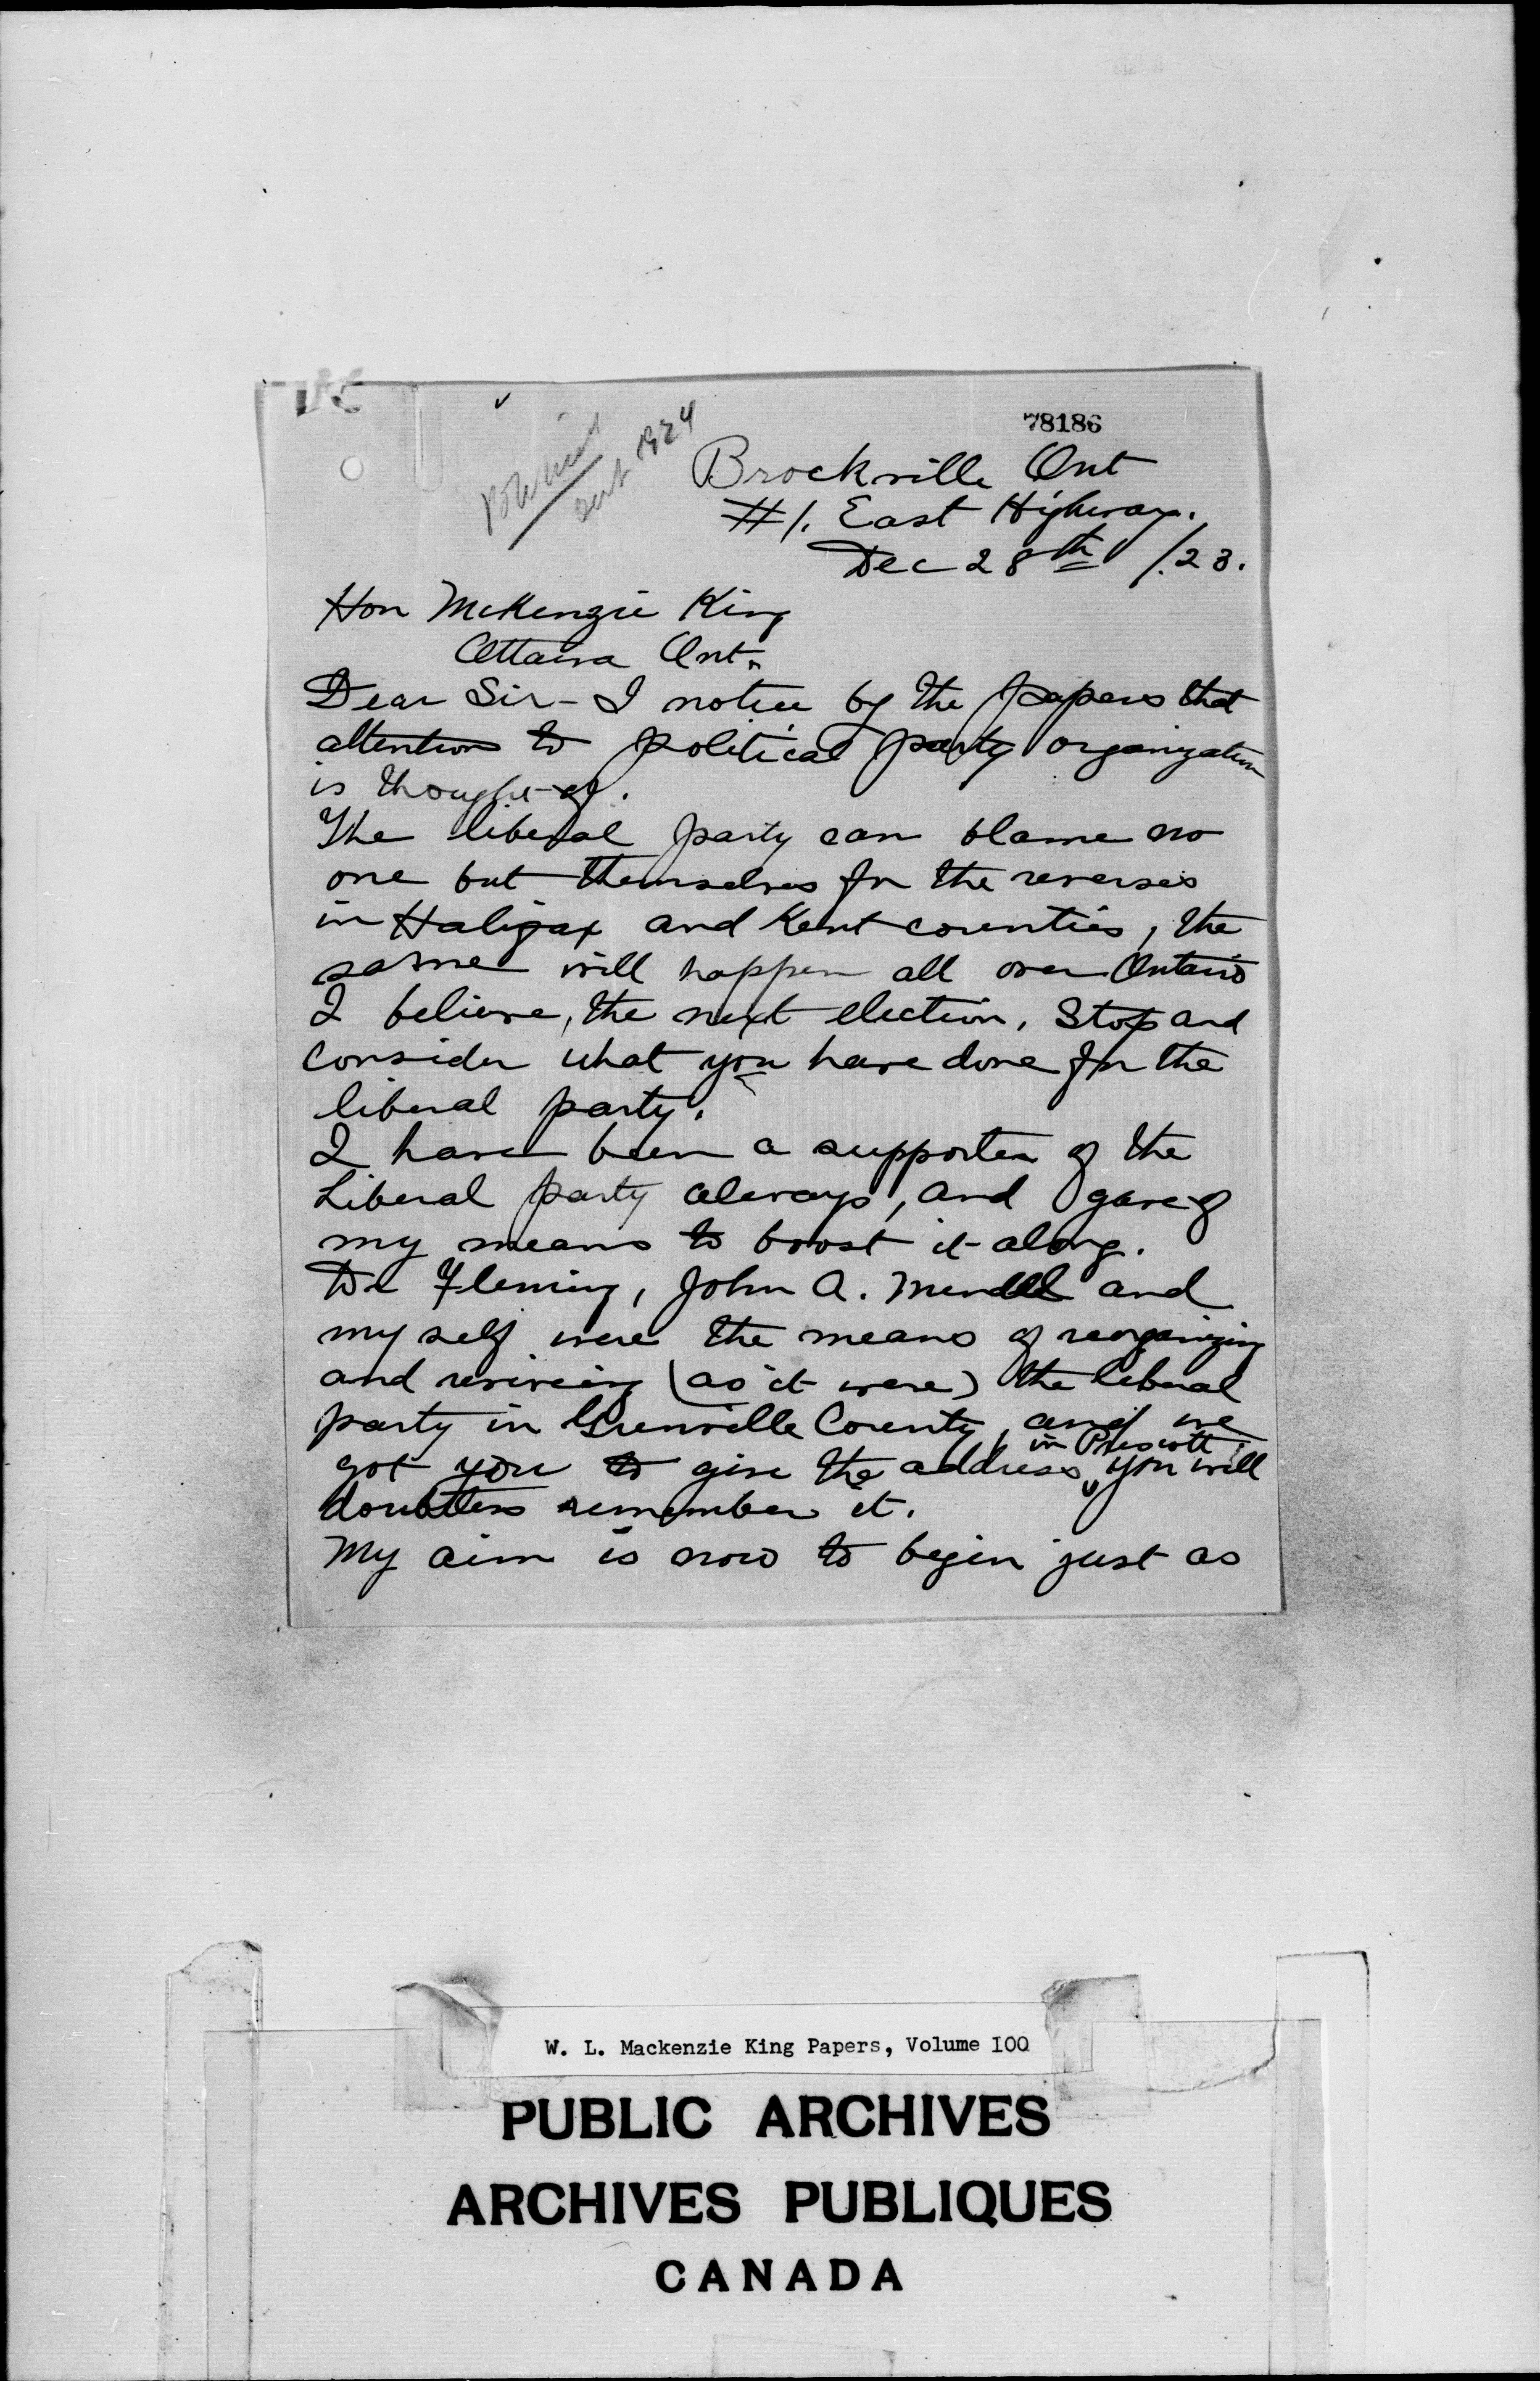 78186
1924
Brockville Ont
#1. East Highway.
Dec 28th /23.
Hon McKenzie King
Ottawa Ont.
Dear Sir - I notice by the papers that
attention to political party organization
is thought of.
The liberal party can blame no
one but themselves for the reverses
in Halifax and Kent counties, the
same will happen all over Ontario
I believe, the next election. Stop and
consider what you have done for the
liberal party.
I have been a supporter of the
Liberal party always, and gave of
my means to boost it along.
Dr Fleming, John A. and
my self were the means of reorganizing
and reviveing (as it were) the liberal
party in Grenville County, and we
got you to give the address in Prescott, you will
doubtless remember it.
My aim is now to begin just as
W. L. Mackenzie King Papers, Volume 100
PUBLIC ARCHIVES
ARCHIVES PUBLIQUES
CANADA